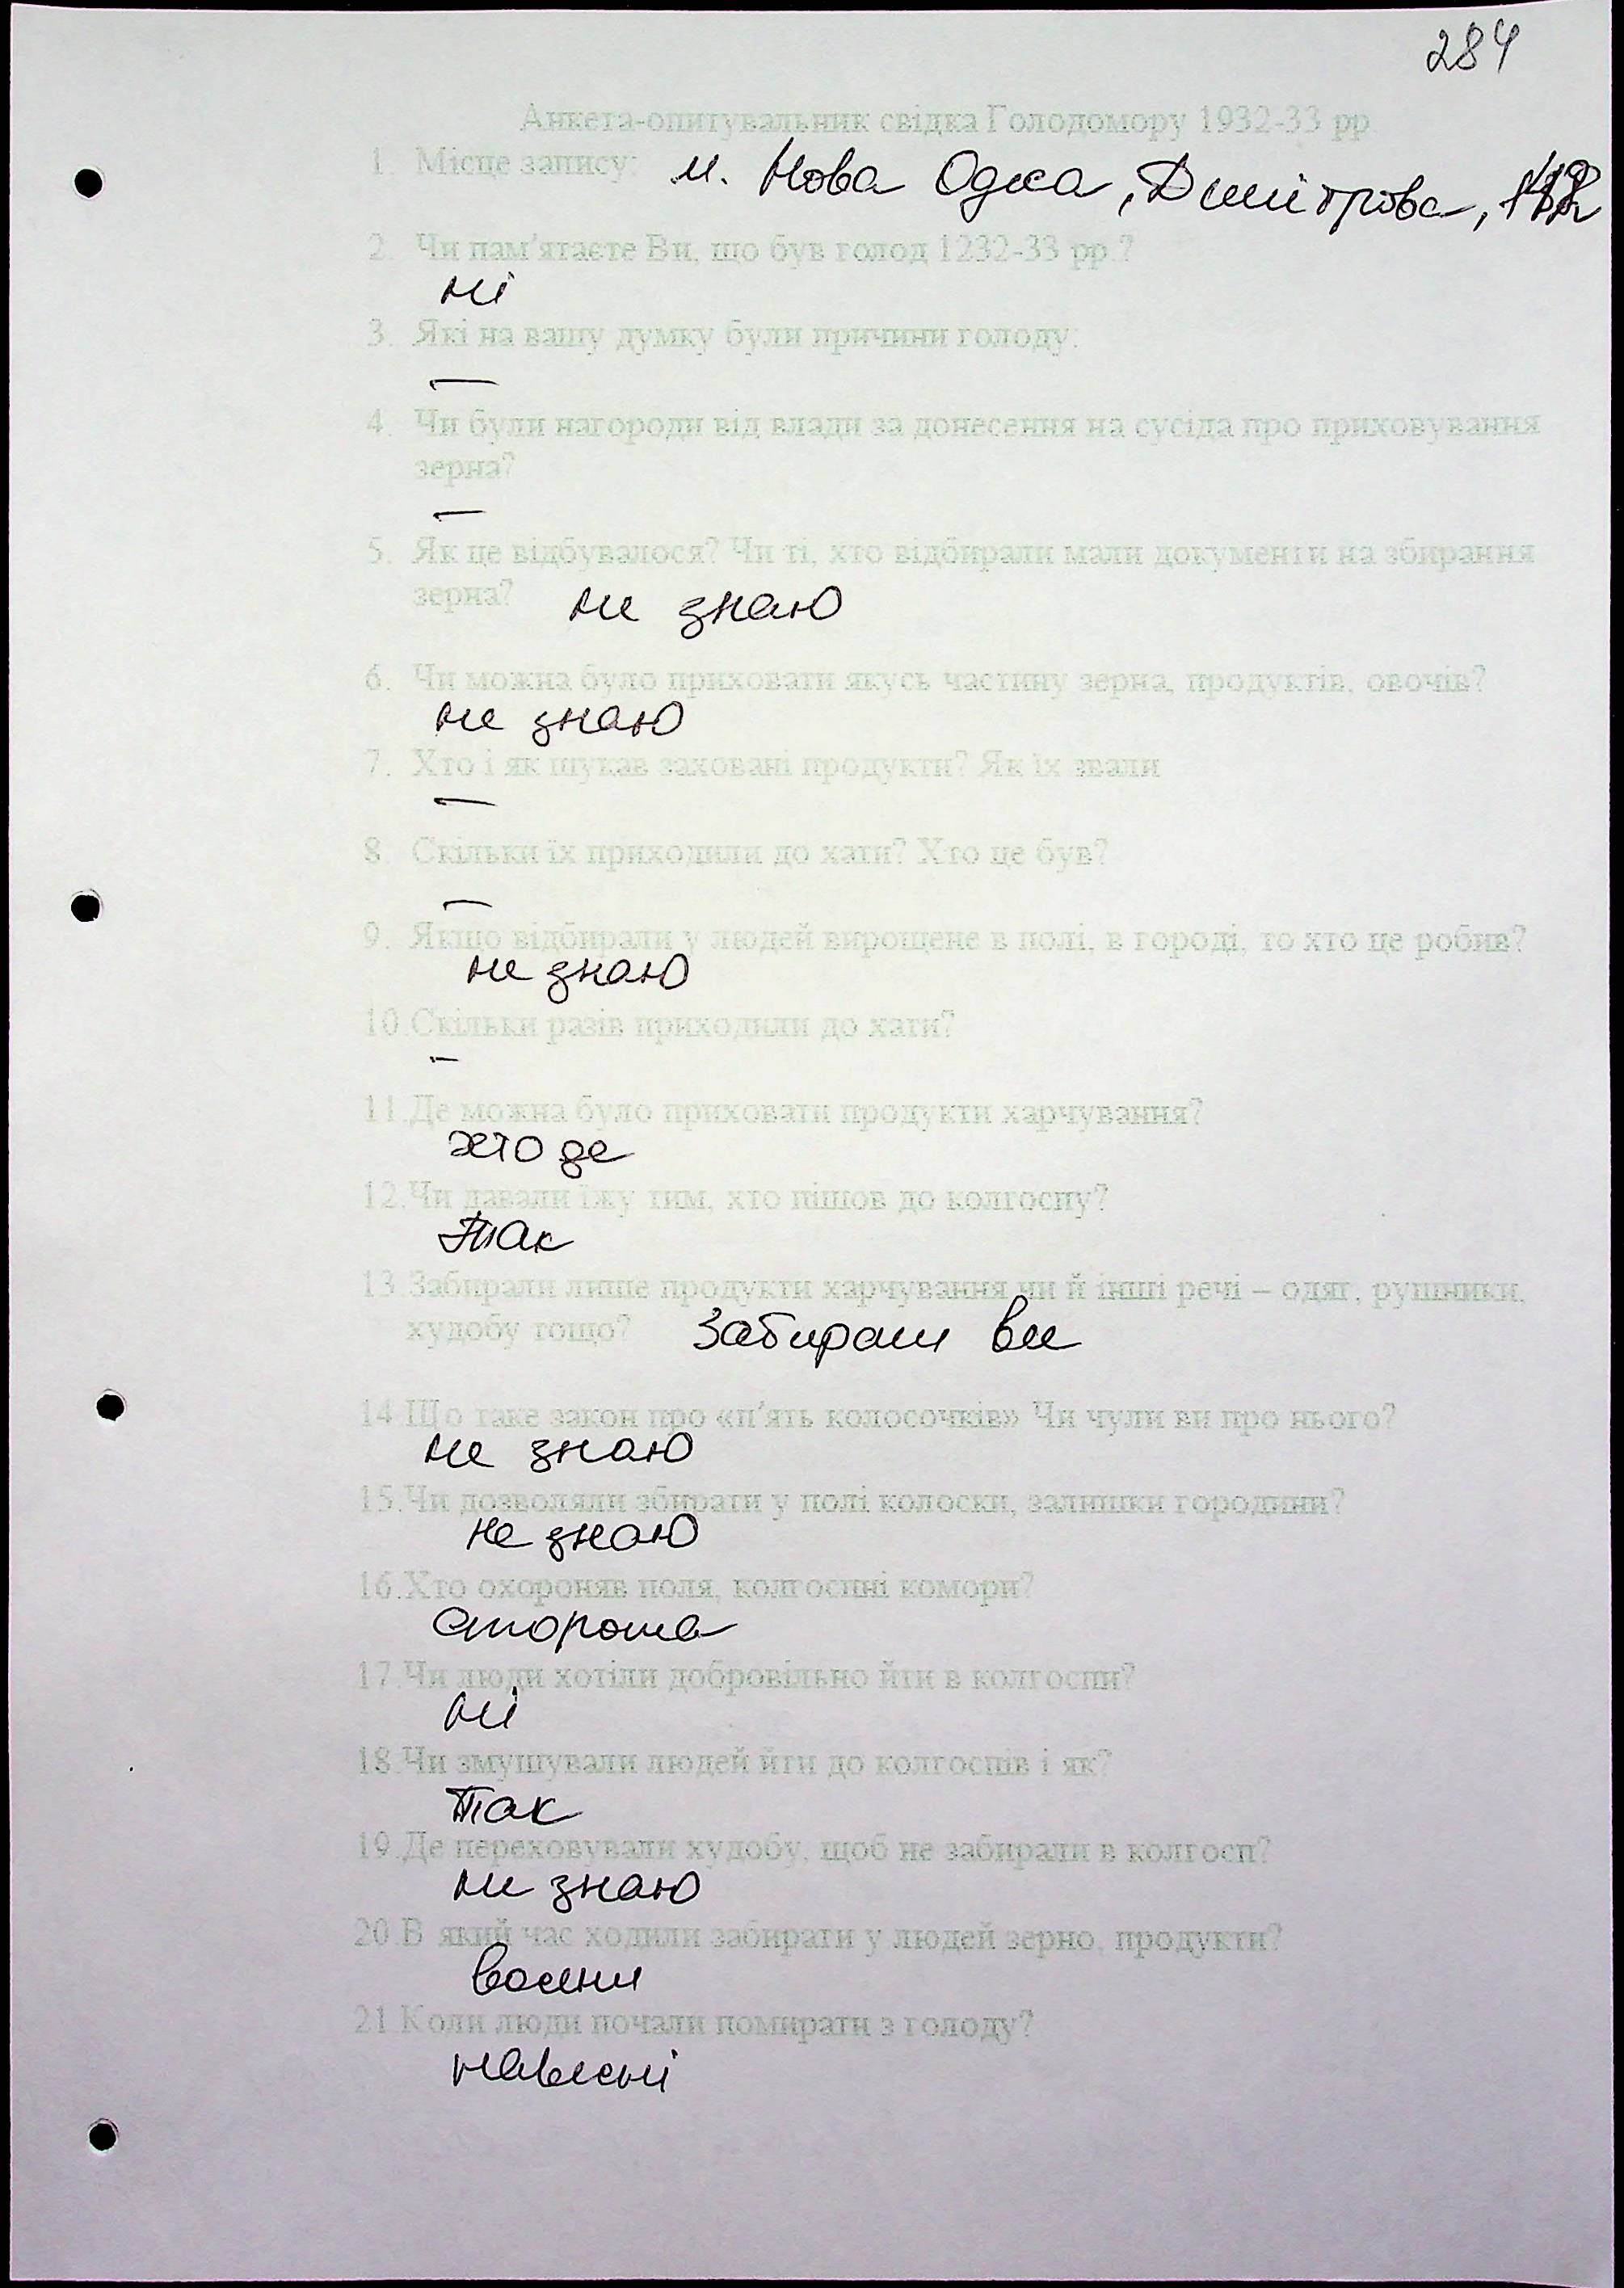 284
Анкета-опитувальник свідка Голодомору 1932-33 рр
1. Місце запису: м. Нова Одеса, Дмитрова,
2. Чи пам'ятаєте Ви, що був голод 1232-33 рр.?
ні
3. Які на вашу думку були причини голоду:
—
4. Чи були нагороди від влади за донесення на сусіда про приховування
зерна?
—
5. Як це відбувалося? Чи ті, хто відбирали мали документи на збирання
зерна? не знаю
6. Чи можна було приховати якусь частину зерна, продуктів, овочів?
не знаю
7. Хто і як шукав заховані продукти? Як їх звали
—
8. Скільки їх приходили до хати? Хто це був?
—
9. Якщо відбирали у людей вирощене в полі, в городі, то хто це робив?
не знаю
10.Скільки разів приходили до хати?
—
11.Де можна було приховати продукти харчування?
хто де
12.Чи давали їжу тим, хто пішов до колгоспу?
Так
13.Забирали лише продукти харчування чи й інші речі – одяг, рушники,
худобу тощо? Забирали все
14.Що таке закон про «п'ять колосочків» Чи чули ви про нього?
не знаю
15.Чи дозволяли збирати у полі колоски, залишки городини?
не знаю
16.Хто охороняв поля, колгоспні комори?
сторожа
17.Чи люди хотіли добровільно йти в колгоспи?
ні
18.Чи змушували людей йти до колгоспів і як?
Так
19.Де переховували худобу, щоб не забирали в колгосп?
не знаю
20.В який час ходили забирати у людей зерно, продукти?
восени
21.Коли люди почали помирати з голоду?
навесні